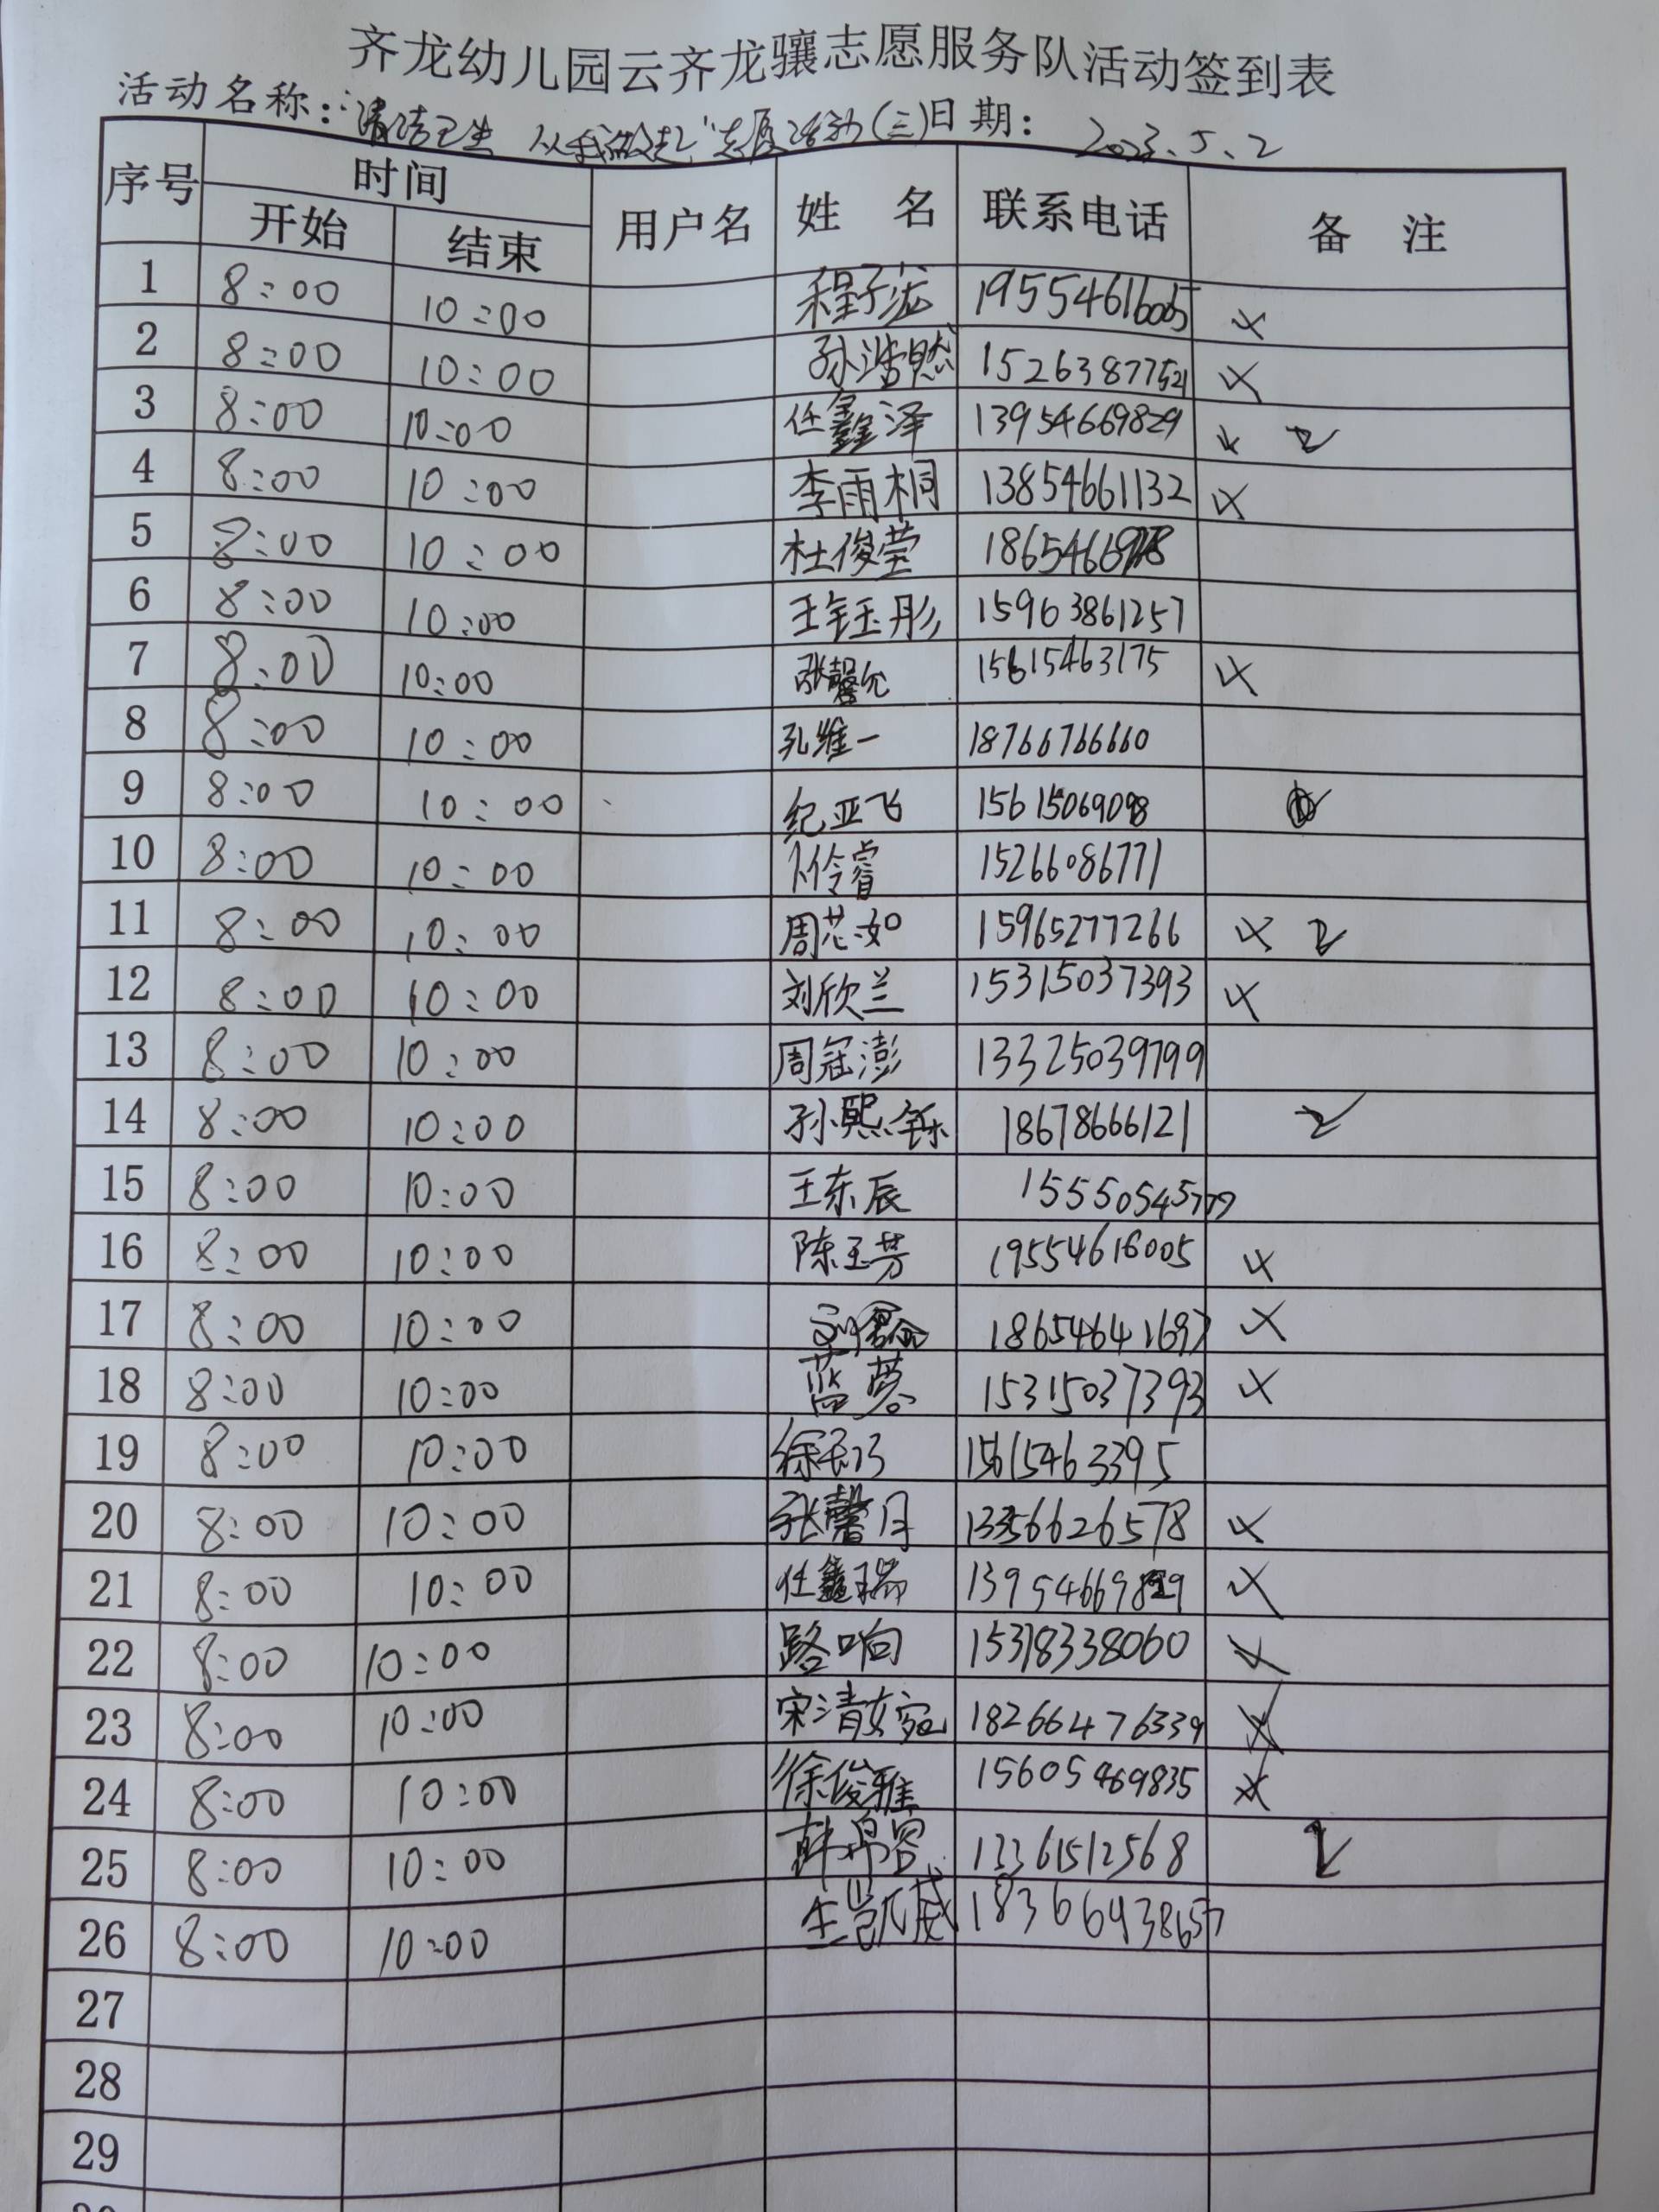 齐龙幼儿园云齐龙骧志愿服务队活动签到表
活动名称：“清洁卫生 从我做起”志愿活动(三) 日期： 2023.5.2
序号 时间 用户名 姓 名 联系电话 备 注
开始 结束
1 8:00 10:00 程子泷 19554616005
2 8:00 10:00 孙浩然 15263877521
3 8:00 10:00 任鑫泽 13954669829 2
4 8:00 10:00 李雨桐 13854661132
5 8:00 10:00 杜俊莹
6 8:00 10:00 王钰彤 15963861257
7 8:00 10:00 张馨允 15615463175
8 8:00 10:00 孔维一 18766766660
9 8:00 10:00 纪亚飞 15615069098
10 8:00 10:00 卜伶睿 15266086771
11 8:00 10:00 周芯如 15965277266 2
12 8:00 10:00 刘欣兰 15315037393
13 8:00 10:00 周冠澎 13325039799
14 8:00 10:00 孙熙铄 18678666121 2
15 8:00 10:00 王东辰 15550545779
16 8:00 10:00 陈玉芳 19554616005
17 8:00 10:00 18654641697
18 8:00 10:00 蓝蓉 15315037393
19 8:00 10:00 15615463395
20 8:00 10:00 张馨月 13356626578
21 8:00 10:00 任鑫瑞 13954669829
22 8:00 10:00 路响 15318338060
23 8:00 10:00 宋清婉 18266476339
24 8:00 10:00 徐俊雅 15605469835
25 8:00 10:00 韩帛容 13361512568
26 8:00 10:00 生凯威 18366938657
27
28
29